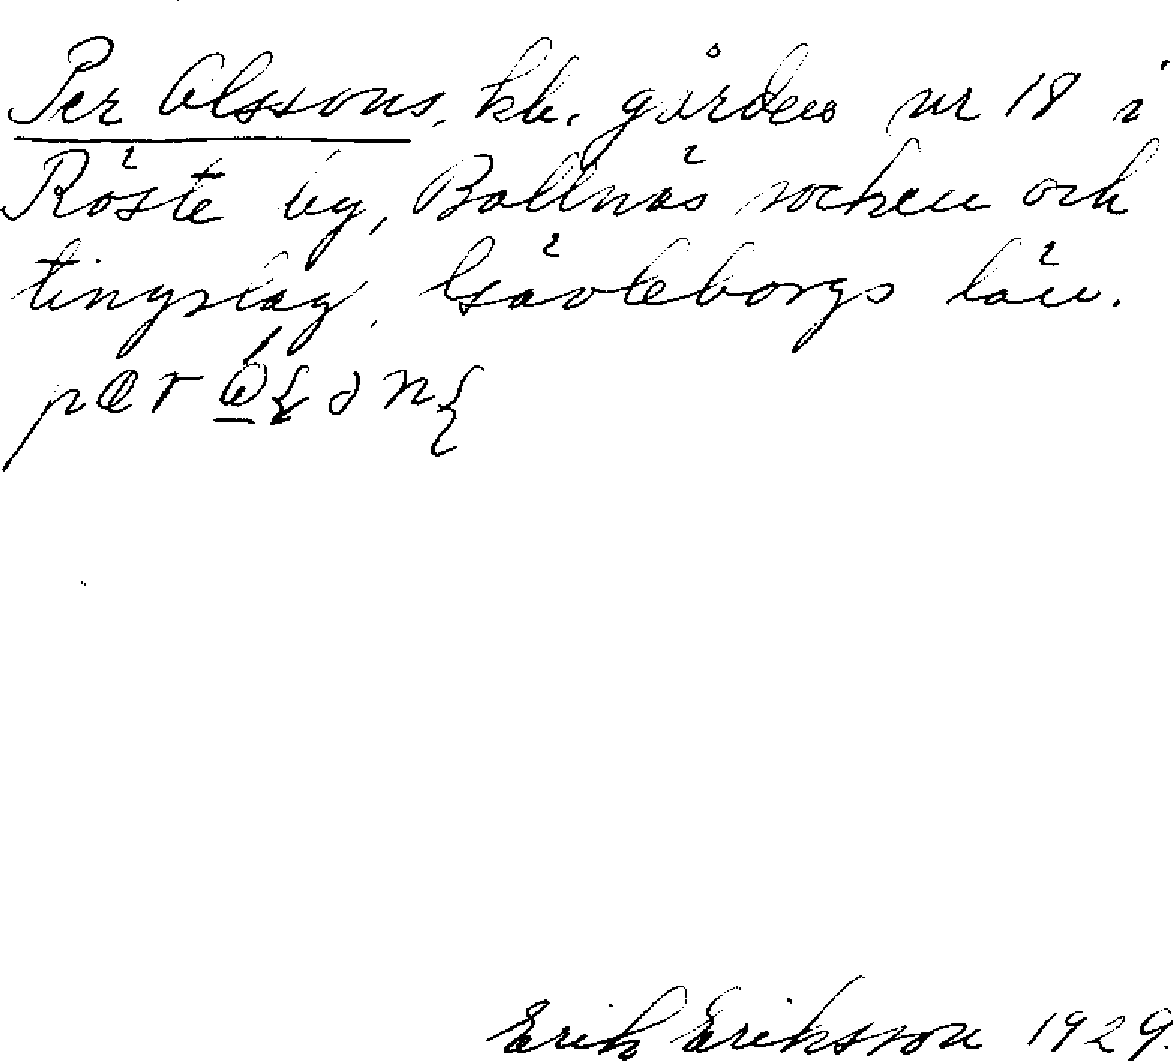 Per Olssons, kb. gården nr 18 i
Röste by, Bollnäs socken och
tingslag, Gävleborgs län.
pær
Erik Eriksson 1929.